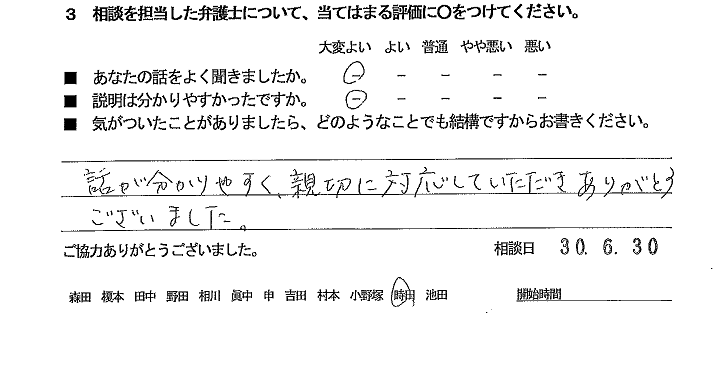 3 相談を担当した弁護士について、当てはまる評価に〇をつけてください。
大変よい よい 普通 やや悪い 悪い
■ あなたの話をよく聞きましたか。 － － － － －
■ 説明は分かりやすかったですか。 － － － － －
■ 気がついたことがありましたら、どのようなことでも結構ですからお書きください。
話が分かりやすく、親切に対応していただきありがとう
ございました。
ご協力ありがとうございました。 相談日 30. 6. 30
森田 榎本 田中 野田 相川 眞中 申 吉田 村本 小野塚 時田 池田 開始時間